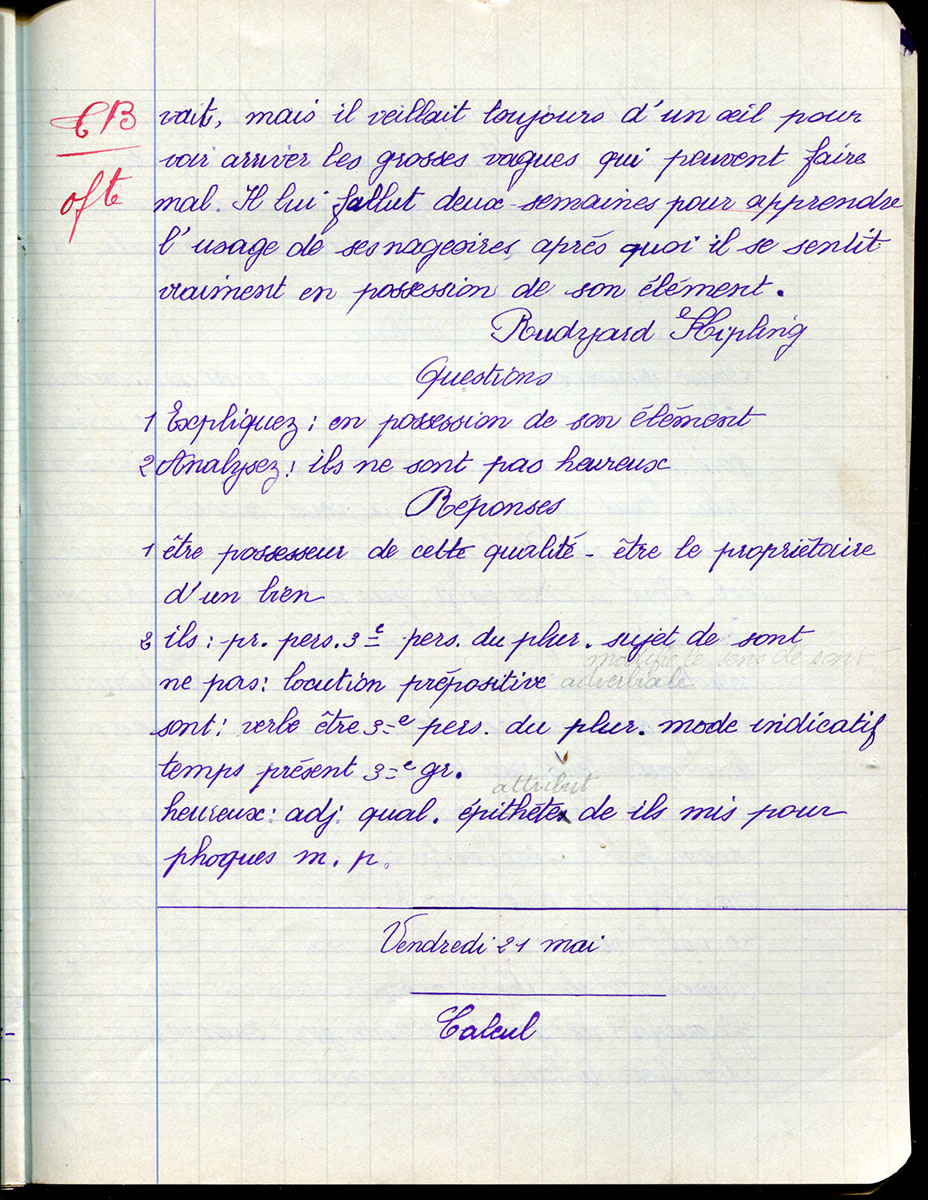 TB vait, mais il veillait toujours d'un œil pour
voir arriver les grosses vagues qui peuvent faire
oft mal. Il lui fallut deux semaines pour apprendre
l'usage de ses nageoires, après quoi il se sentit
vraiment en possession de son élément.
Rudyard Kipling
Questions
1 Expliquez : en possession de son élément
2 Analysez : ils ne sont pas heureux
Réponses
1 être possesseur de cette qualité - être le propriétaire
d'un bien
2 ils : pr. pers. 3e pers. du plur. sujet de sont
modifie le sens de sont
ne pas : locution prépositive adverbiale
sont : verbe être 3e pers. du plur. mode indicatif
temps présent 3e gr.
attribut
heureux : adj. qual. épithète de ils mis pour
phoques m. p.
Vendredi 21 mai
Calcul